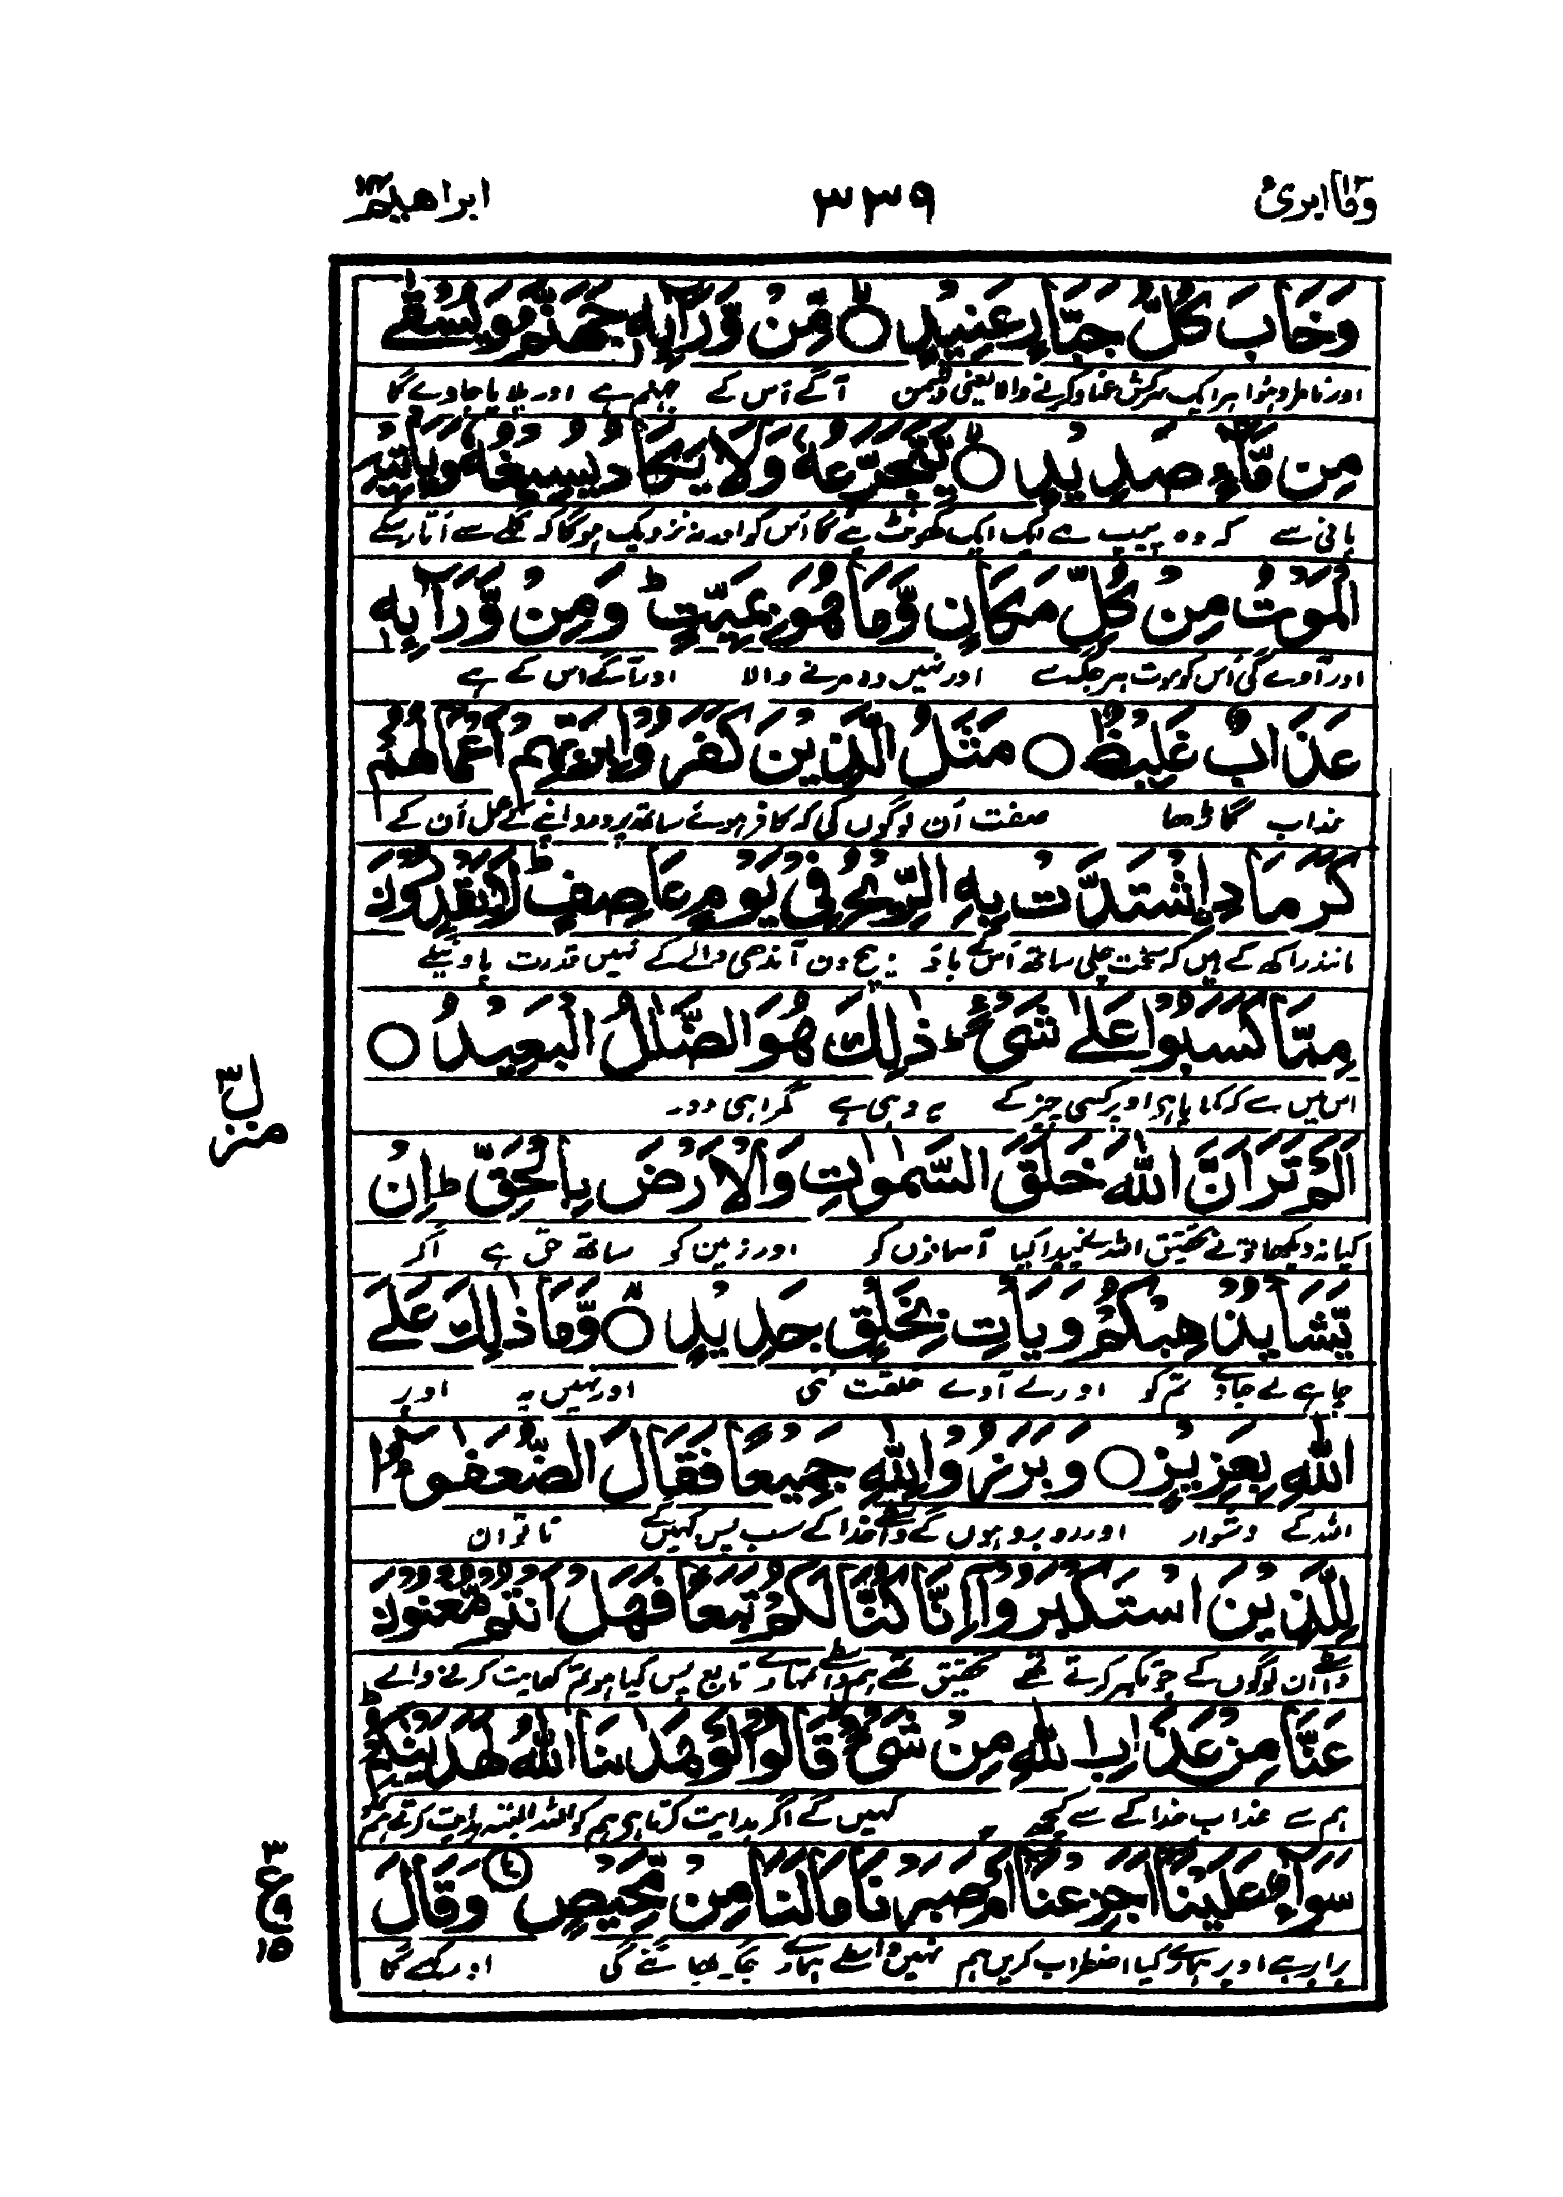 وما ابرئ ١٣
٣٣٩
ابراهيم ١٤
وَخَابَ كُلُّ جَبَّارٍ عَنِيْدٍ ۝ مِّنْ وَّرَآئِهٖ جَهَنَّمُ وَيُسْقٰى
اور نامراد ہوا ہر ایک سرکش عناد کرنے والا یعنی دشمن آگے اُس کے جہنم ہے اور پلایا جاوے گا
مِنْ مَّآءٍ صَدِيْدٍ ۝ يَّتَجَرَّعُهٗ وَلَا يَكَادُ يُسِيْغُهٗ وَيَاْتِيْهِ
پانی سے کہ وہ پیپ ہے ایک ایک گھونٹ پئے گا اُس کو اور نہ نزدیک ہوگا کہ گلے سے اُتار سکے
الْمَوْتُ مِنْ كُلِّ مَكَانٍ وَّمَا هُوَ بِمَيِّتٍ ؕ وَمِنْ وَّرَآئِهٖ
اور آوے گی اُس کو موت ہر جگہ سے اور نہیں وہ مرنے والا اور آگے اس کے ہے
عَذَابٌ غَلِيْظٌ ۝ مَثَلُ الَّذِيْنَ كَفَرُوْا بِرَبِّهِمْ اَعْمَالُهُمْ
عذاب گاڑھا صفت اُن لوگوں کی کہ کافر ہوئے ساتھ پروردگار اپنے کے عمل اُن کے
كَرَمَادِ ۨاشْتَدَّتْ بِهِ الرِّيْحُ فِيْ يَوْمٍ عَاصِفٍ ؕ لَا يَقْدِرُوْنَ
مانند راکھ کے ہیں کہ سخت چلی ساتھ اُس کے باؤ بیچ دن آندھی والے کے نہیں قدرت پاوینگے
مِمَّا كَسَبُوْا عَلٰى شَيْءٍ ؕ ذٰلِكَ هُوَ الضَّلٰلُ الْبَعِيْدُ ۝
اس میں سے کہ کمایا ہے اوپر کسی چیز کے یہ وہی ہے گمراہی دور
اَلَمْ تَرَ اَنَّ اللّٰهَ خَلَقَ السَّمٰوٰتِ وَالْاَرْضَ بِالْحَقِّ ؕ اِنْ
کیا نہ دیکھا تو نے تحقیق اللہ نے پیدا کیا آسمانوں کو اور زمین کو ساتھ حق کے اگر
يَّشَاْ يُذْهِبْكُمْ وَيَاْتِ بِخَلْقٍ جَدِيْدٍ ۝ وَّمَا ذٰلِكَ عَلَى
چاہے لے جاوے تم کو اور لے آوے خلقت نئی اور نہیں یہ اوپر
اللّٰهِ بِعَزِيْزٍ ۝ وَبَرَزُوْا لِلّٰهِ جَمِيْعًا فَقَالَ الضُّعَفٰٓؤُا
اللہ کے دشوار اور روبرو ہوں گے واسطے خدا کے سب پس کہیں گے ناتوان
لِلَّذِيْنَ اسْتَكْبَرُوْٓا اِنَّا كُنَّا لَكُمْ تَبَعًا فَهَلْ اَنْتُمْ مُّغْنُوْنَ
واسطے ان لوگوں کے جو تکبر کرتے تھے تحقیق تھے ہم واسطے تمہارے تابع پس کیا ہو تم کفایت کرنے والے
عَنَّا مِنْ عَذَابِ اللّٰهِ مِنْ شَيْءٍ ؕ قَالُوْا لَوْ هَدٰىنَا اللّٰهُ لَهَدَيْنٰكُمْ ؕ
ہم سے عذاب خدا کے سے کچھ کہیں گے اگر ہدایت کرتا ہم کو اللہ البتہ ہدایت کرتے ہم
سَوَآءٌ عَلَيْنَآ اَجَزِعْنَآ اَمْ صَبَرْنَا مَا لَنَا مِنْ مَّحِيْصٍ ۝ وَقَالَ
برابر ہے اوپر ہمارے کیا اضطراب کریں ہم نہیں واسطے ہمارے جگہ بھاگنے کی اور کہے گا
منزل ٣
٣
ع
١٥